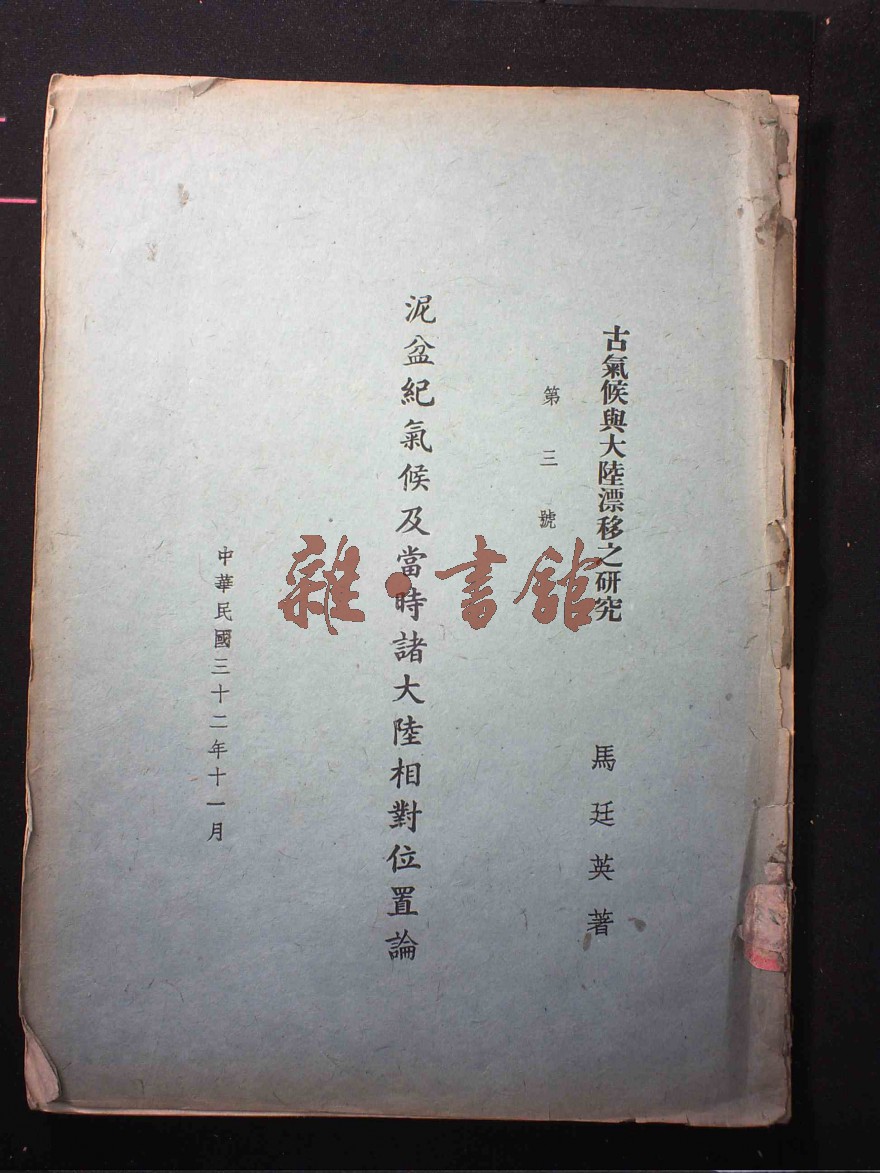 古氣候與大陸漂移之硏究
第三號
馬廷英著
泥盆紀氣候及當時諸大陸相對位置論
中華民國三十二年十一月
雜·書館